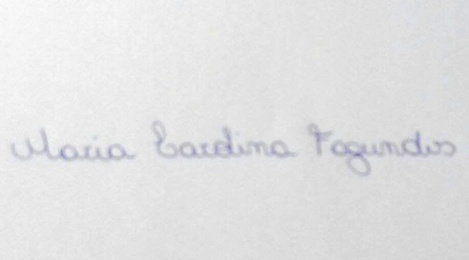 Maria Cardina Fagundes